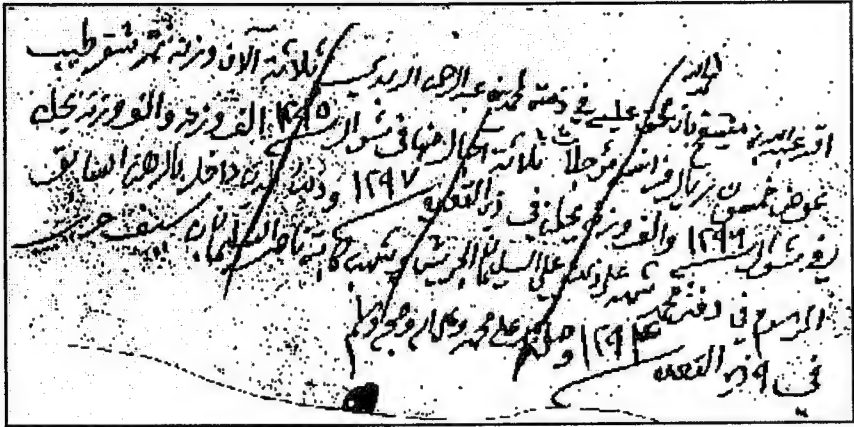 الحمد لله
اقر عبدالله بن مشيقح بان عليه في ذمته لمحمد بن عبدالرحمن الربدي ثلاثة آلاف وزنة تمر شقر طيب
عوض خمسين ريال فرانسه مؤجلات ثلاثة آجال منها في شوال سنة ١٢٩٥ الف وزنه والف وزنة يحلن
في شوال سنة ١٢٩٦ والف وزنة يحلن في ذي القعدة ١٢٩٧ وذلك الدين داخل بالرهن السابق
المرسوم في دفتر محمد شهد على ذلك علي السليمان الجريش وشهد كاتبه ناصر السليمان بن سيف حرر
في ٩ ذي القعدة ١٢٩٤ وصلى الله على محمد وعلى آله وصحبه وسلم